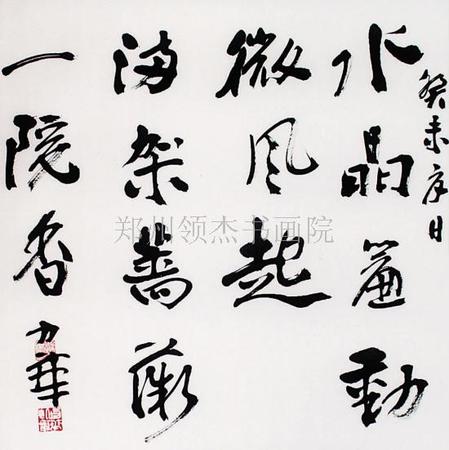 癸未夏日
水晶簾動
微风起
满架薔薇
一院香
郑州领杰书画院